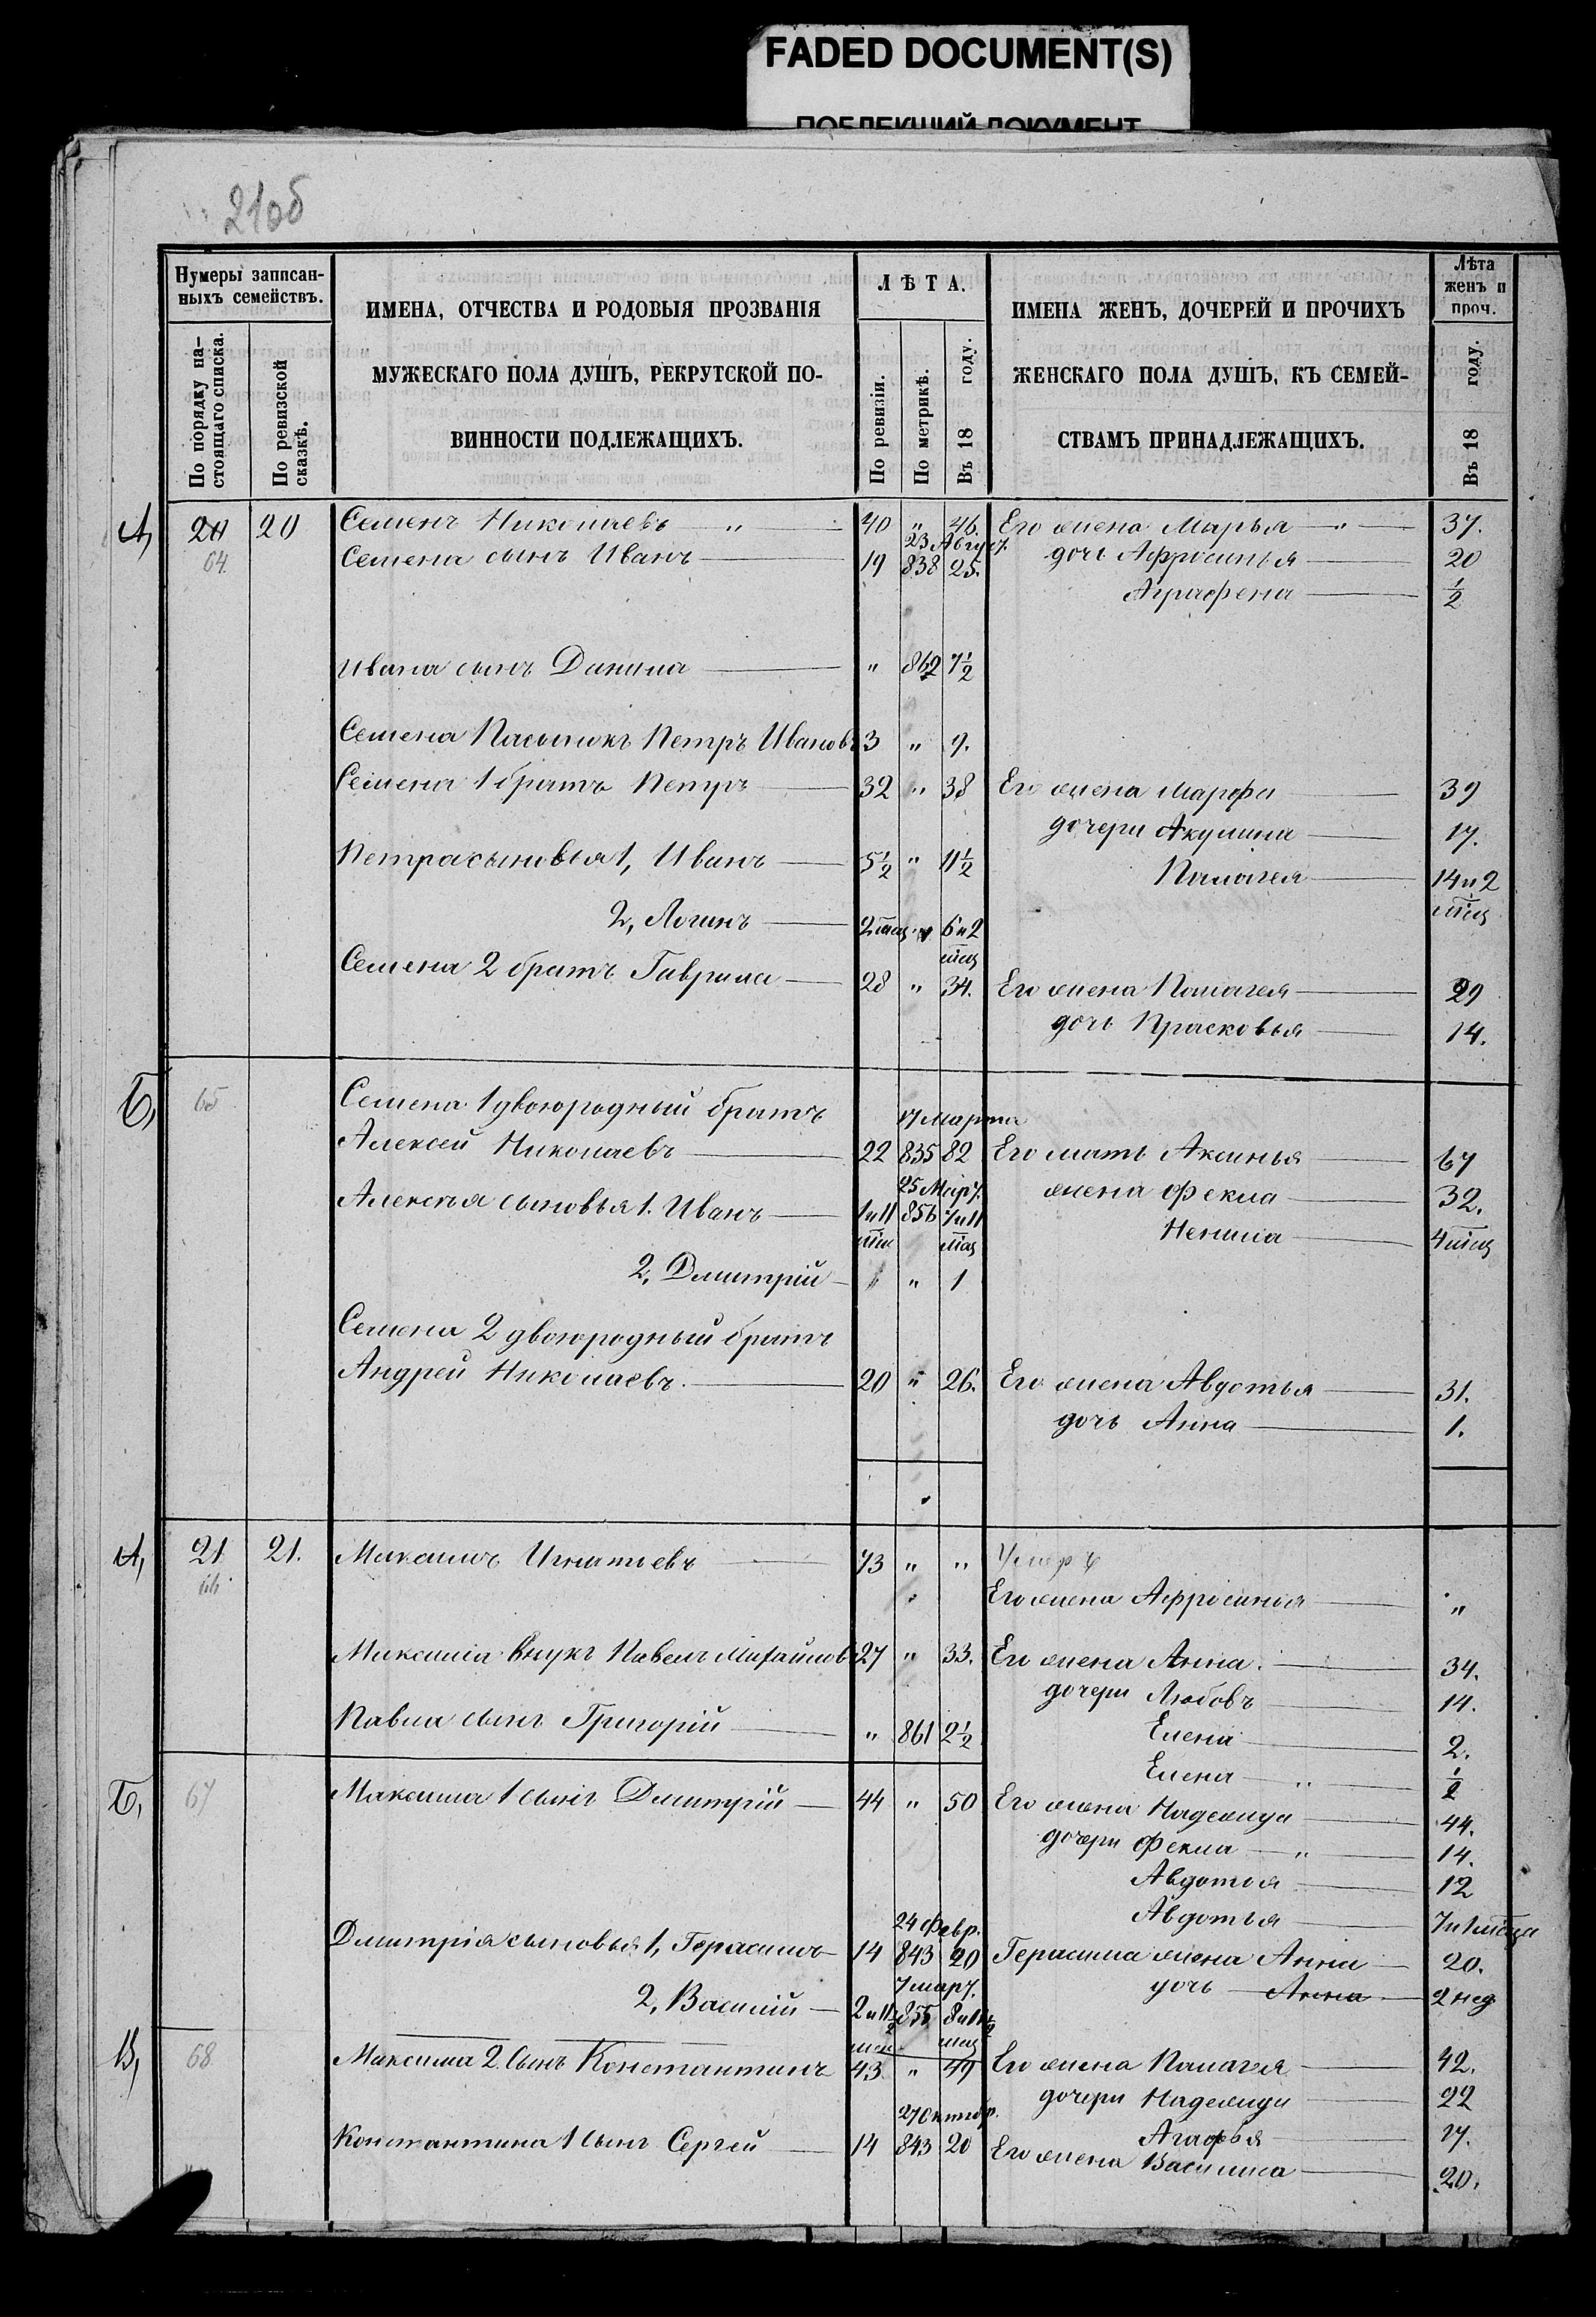 FADED DOCUMENT(S)
ПОБЛЕКШИЙ ДОКУМЕНТ
21об
Нумеры записан-
ныхъ семействъ.
По порядку на-
стоящаго списка.
По ревизской
сказкѣ.
ИМЕНА, ОТЧЕСТВА И РОДОВЫЯ ПРОЗВАНІЯ
МУЖЕСКАГО ПОЛА ДУШЪ, РЕКРУТСКОЙ ПО-
ВИННОСТИ ПОДЛЕЖАЩИХЪ.
ЛѢТА.
По ревизіи.
По метрикѣ.
Въ 18 году.
ИМЕНА ЖЕНЪ, ДОЧЕРЕЙ И ПРОЧИХЪ
ЖЕНСКАГО ПОЛА ДУШЪ, КЪ СЕМЕЙ-
СТВАМЪ ПРИНАДЛЕЖАЩИХЪ.
Лѣта
женъ и
проч.
Въ 18 году.
А, 20 20 Семенъ Николаевъ — " — 40 " 46. Его жена Марья — " — 37.
64 23 Август.
Семена сынъ Иванъ — 19 838 25. дочь Афросинья — 20
Аграфена — ½
Ивана сынъ Данила — " 862 7½
Семена Пасынокъ Петръ Ивановъ 3 " 9.
Семена 1 братъ Петръ — 32 " 38 Его жена Марфа — 39
дочери Акулина — 17.
Петра сыновья 1, Иванъ — 5½ " 11½
Палагея — 14 и 2
мѣц
2, Логинъ — 2 мѣц. " 6 и 2
мѣц
Семена 2 братъ Гаврила — 28 " 34. Его жена Палагея — 29
дочь Прасковья — 14.
Б, 65 Семена 1 двоюродный братъ
17 Марта
Алексей Николаевъ — 22 835 82 Его мать Аксинья — 67
25 Март.
Алексея сыновья 1. Иванъ — 1 и 11 856 7 и 11 жена Фекла — 32.
мѣц мѣц
Ненила — 4 мѣц
2, Дмитрій — " " 1
Семена 2 двоюродный братъ
Андрей Николаевъ. — 20 " 26. Его жена Авдотья — 31.
дочь Анна — 1.
А, 21 21. Максимъ Игнатьевъ — 73 " " Умеръ
66.
Его жена Афросинья — "
Максима Внукъ Павелъ Михайловъ 27 " 33. Его жена Анна. — 34.
дочери Любовь — 14.
Павла сынъ Григорій — " 861 2½
Елена — 2.
Елена — " — ½
Б, 67 Максима 1 сынъ Дмитрій — 44 " 50 Его жена Надежда — 44.
дочери Фекла — " — 14.
Авдотья — 12
Авдотья — 7 и 1 мѣца
24 Февр.
Дмитрія сыновья 1, Герасимъ — 14 843 20 Герасима жена Анна — 20.
7 март.
2, Василій — 2 и 11½ 855 8 и 11½ дочь — Анна — 2 нед
мѣц мѣц
В, 68 Максима 2. Сынъ Константинъ 43. " 49 Его жена Палагея — 42.
дочери Надежда — 22
27 Октябр.
Агафья — 17.
Константина 1 Сынъ Сергей — 14 843 20 Его жена Василиса — 20.